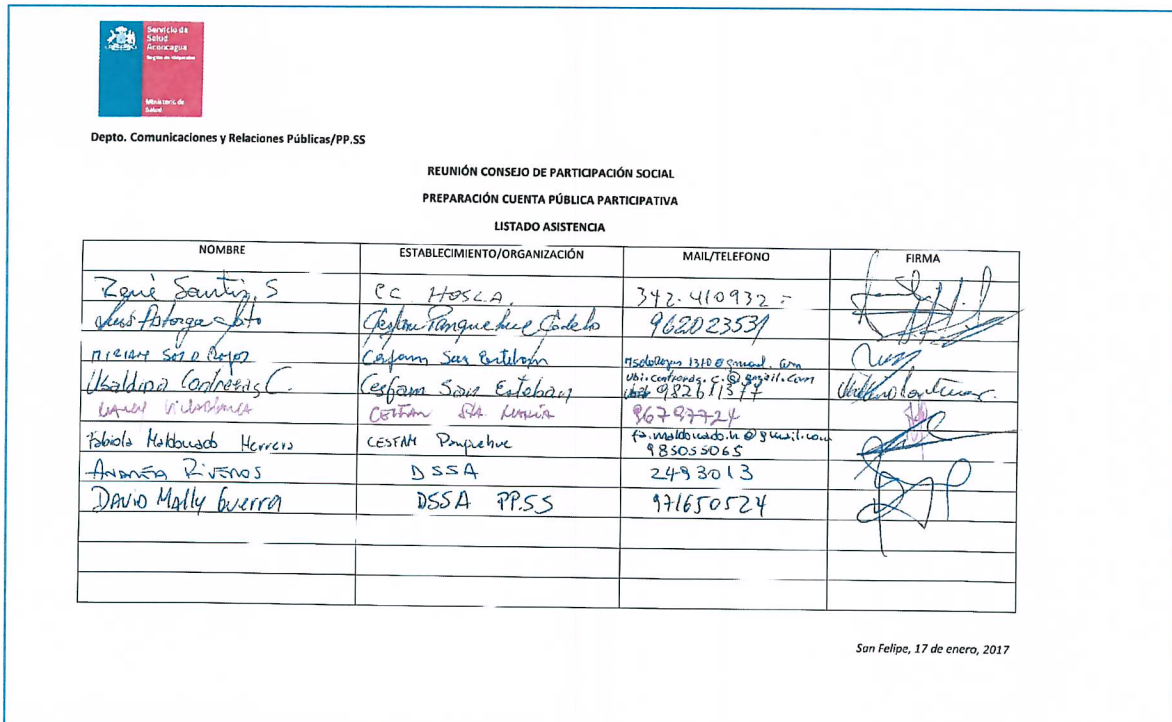 Servicio de
Salud
Aconcagua
Ministerio de
Salud
Depto. Comunicaciones y Relaciones Públicas/PP.SS
REUNIÓN CONSEJO DE PARTICIPACIÓN SOCIAL
PREPARACIÓN CUENTA PÚBLICA PARTICIPATIVA
LISTADO ASISTENCIA
NOMBRE ESTABLECIMIENTO/ORGANIZACIÓN MAIL/TELEFONO FIRMA
René S CC HOSLA. 342.410932
Luis Astorga Soto Panquehue 962023531
Cesfam San Esteban
Ubaldina Contreras C. Cesfam San Esteban ubi.contreras.c.@gmail.com
982611377
Villablanca CESFAM STA. MARÍA 96797724
Fabiola Maldonado Herrera CESFAM Panquehue fa.maldonado.h@gmail.com
985055065
ANDREA RIVEROS DSSA 2493013
DAVID Mally Guerra DSSA PP.SS 971650524
San Felipe, 17 de enero, 2017